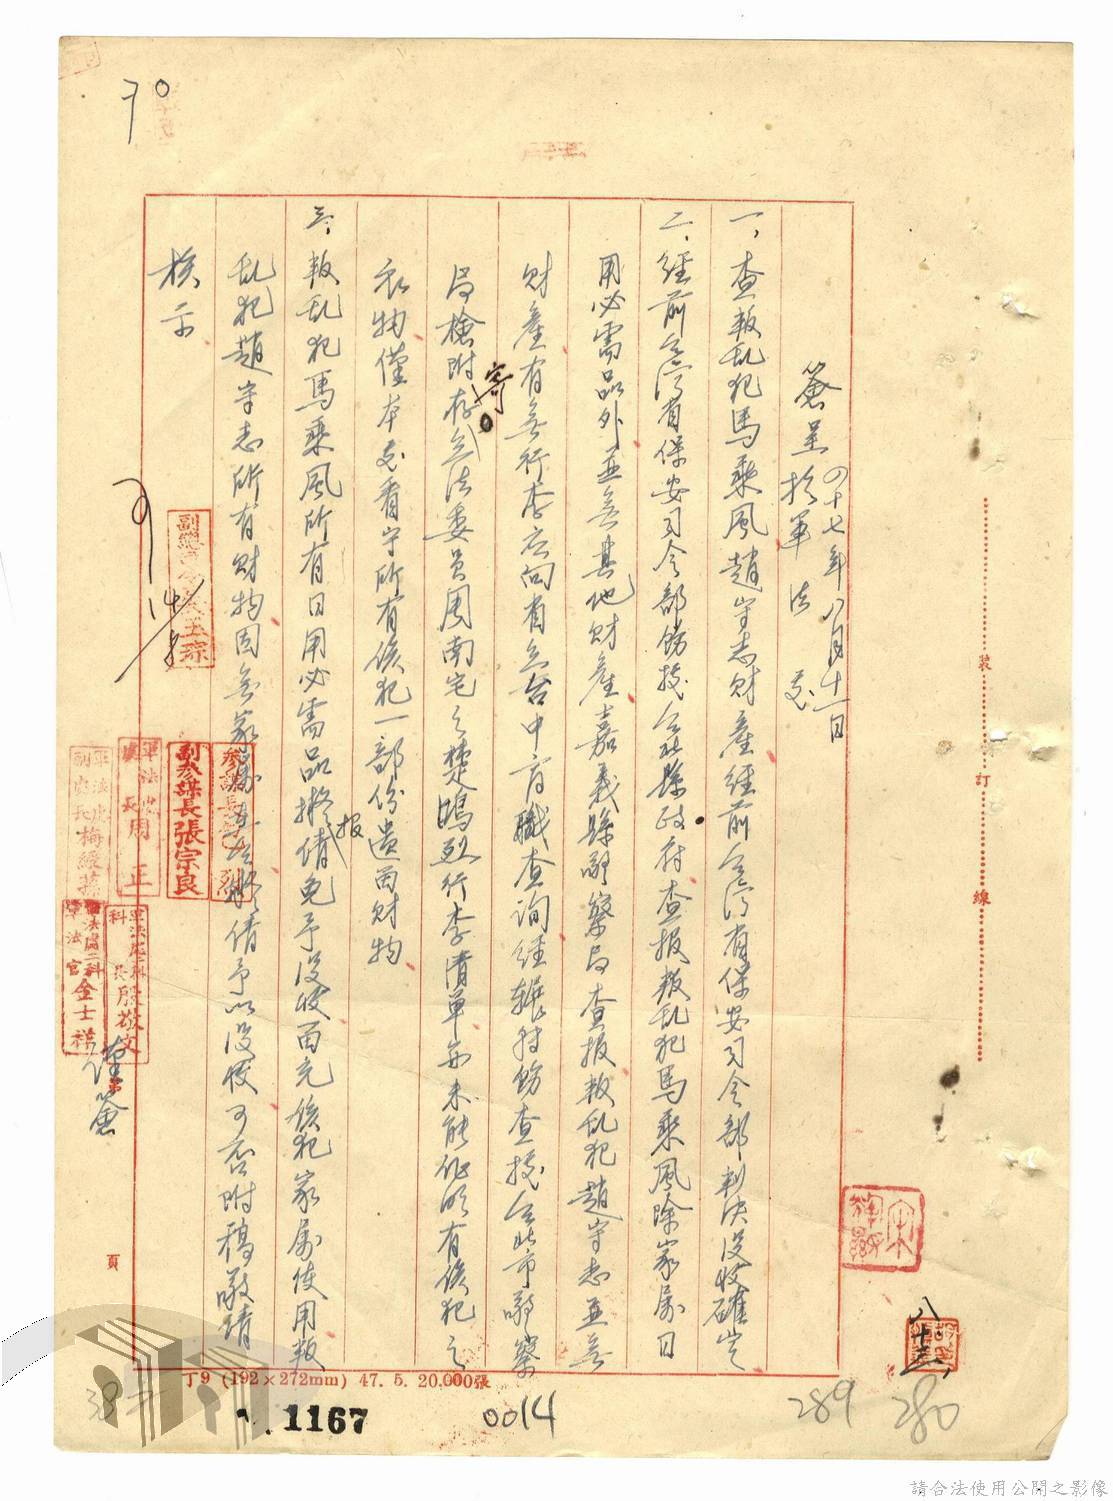 簽呈 四十七年八月十一日
於軍法處
一、查叛乱犯馬乘風趙守志財產經前台湾省保安司令部判決沒收確定
二、經前台湾省保安司令部飭據台北縣政府查报叛乱犯馬乘風除家屬日
用必需品外並無其他財產嘉義縣警察局查报叛乱犯趙守志並無
財產有無行李應向台中育職查询經輾轉飭查據台北市警察
局檢附寄存立法委員周南宅之楚鳴烈行李清單亦未能証明有該犯之
衣物僅本處看守所有該犯一部份遺留財物
三、叛乱犯馬乘風所有日用必需品擬报請免予沒收留充該犯家屬使用叛
乱犯趙守志所有財物因無家屬在台擬請予以沒收可否附稿敬請
核示
可
14/8
副參謀長張宗良
軍法處長周正
軍法處副處長梅綬蓀
軍法處二科科長殷敬文
軍法處二科軍法官金士祥
謹簽
八十三
裝
訂
線
頁
丁9 (192×272mm) 47. 5. 20,000張
1167
0014
289
280
70
請合法使用公開之影像